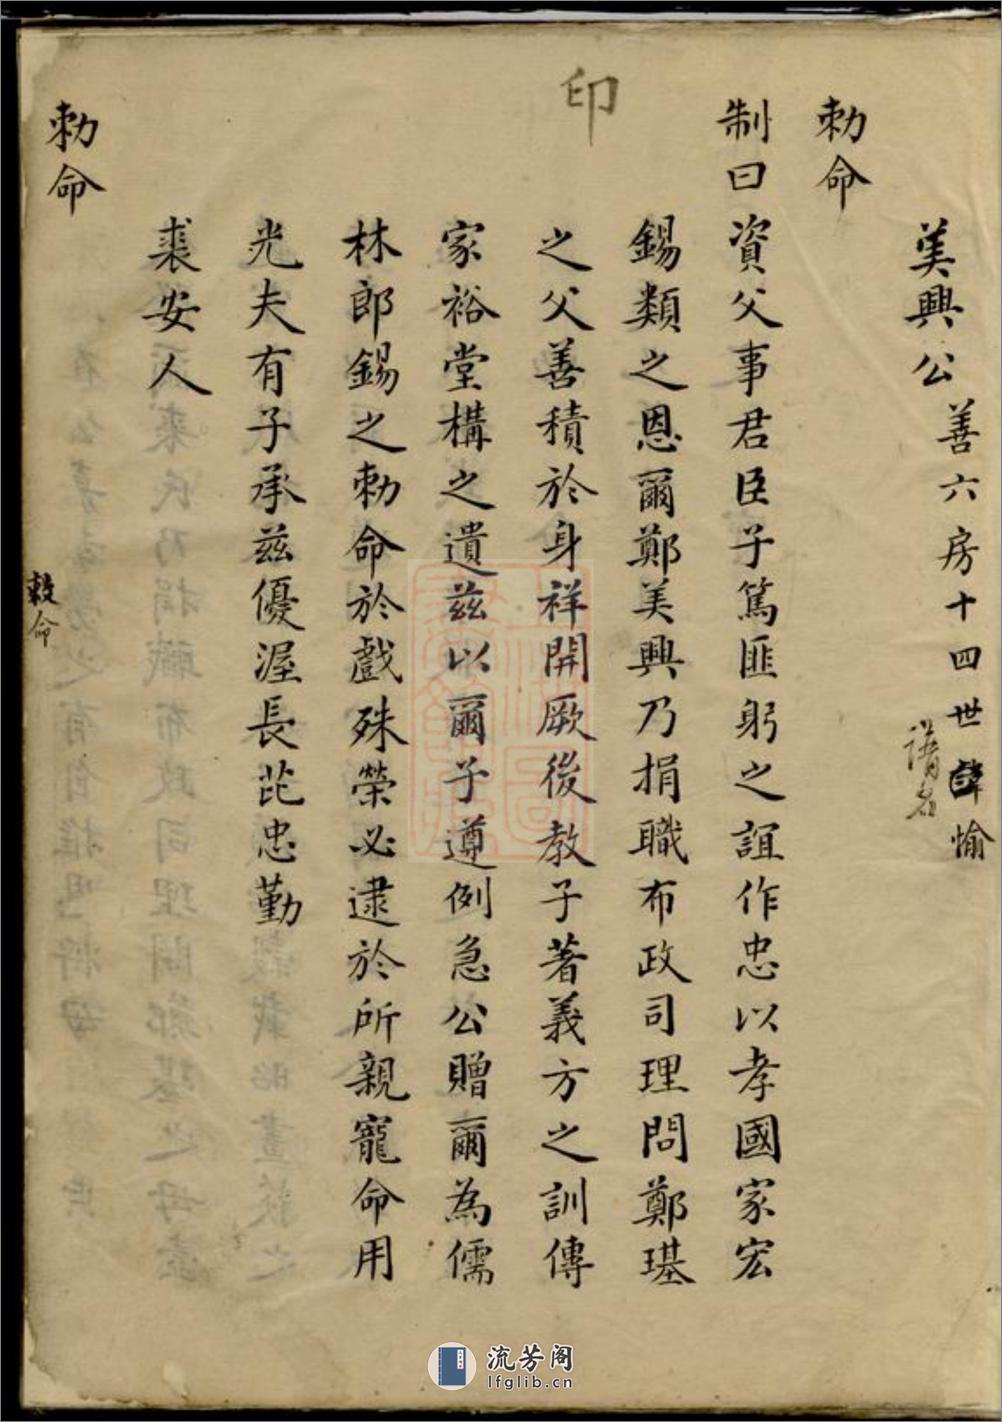 美興公 善六房十四世諱愉
譜名
勅命
制曰資父事君臣子篤匪躬之誼作忠以孝國家宏
錫類之恩爾鄭美興乃捐職布政司理問鄭琪
之父善積於身祥開厥後教子著義方之訓傳
家裕堂構之遺茲以爾子遵例急公贈爾為儒
林郎錫之勅命於戲殊榮必逮於所親寵命用
光夫有子承茲優渥長芘忠勤
裘安人
勅命
敕命
印
流芳阁
lfglib.cn